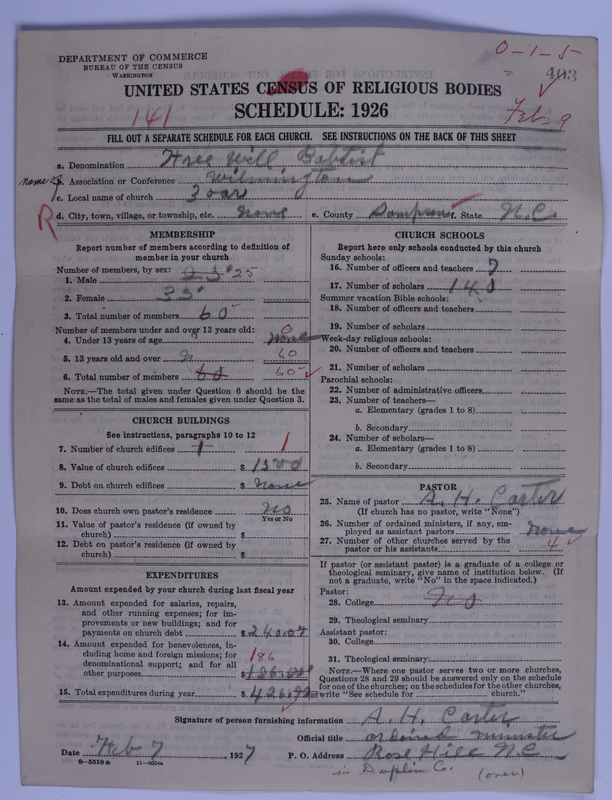 0-1-5
DEPARTMENT OF COMMERCE
BUREAU OF THE CENSUS
WASHINGTON
493
UNITED STATES CENSUS OF RELIGIOUS BODIES
141
SCHEDULE: 1926
Feb 9
FILL OUT A SEPARATE SCHEDULE FOR EACH CHURCH. SEE INSTRUCTIONS ON THE BACK OF THIS SHEET
a. Denomination Free Will Baptist
name of b. Association or Conference Wilmington
c. Local name of church Zoar
R d. City, town, village, or township, etc. None e. County Sampson f. State N.C.
MEMBERSHIP
Report number of members according to definition of
member in your church
Number of members, by sex:
1. Male 25 25
2. Female 35
3. Total number of members 60
Number of members under and over 13 years old:
4. Under 13 years of age none 0
5. 13 years old and over 60
6. Total number of members 60 60
NOTE.—The total given under Question 6 should be
same as the total of males and females given under Question 3.
CHURCH BUILDINGS
See instructions, paragraphs 10 to 12
7. Number of church edifices 1 1
8. Value of church edifices $ 1500
9. Debt on church edifices $ None
10. Does church own pastor's residence No
Yes or No
11. Value of pastor's residence (if owned by
church) $
12. Debt on pastor's residence (if owned by
church) $
EXPENDITURES
Amount expended by your church during last fiscal year
13. Amount expended for salaries, repairs,
and other running expenses; for im-
provements or new buildings; and for
payments on church debt $
14. Amount expended for benevolences, in-
cluding home and foreign missions; for 186
denominational support; and for all
other purposes
15. Total expenditures during year $
CHURCH SCHOOLS
Report here only schools conducted by this church
Sunday schools:
16. Number of officers and teachers 7
17. Number of scholars 140
Summer vacation Bible schools:
18. Number of officers and teachers
19. Number of scholars
Week-day religious schools:
20. Number of officers and teachers
21. Number of scholars
Parochial schools:
22. Number of administrative officers
23. Number of teachers—
a. Elementary (grades 1 to 8)
b. Secondary
24. Number of scholars—
a. Elementary (grades 1 to 8)
b. Secondary
PASTOR
25. Name of pastor A. H. Carter
(If church has no pastor, write "None")
26. Number of ordained ministers, if any, em-
ployed as assistant pastors None
27. Number of other churches served by the
pastor or his assistants 4
If pastor (or assistant pastor) is a graduate of a college or
theological seminary, give name of institution below. (If
not a graduate, write "No" in the space indicated.)
Pastor:
28. College No
29. Theological seminary
Assistant pastor:
30. College
31. Theological seminary
NOTE.—Where one pastor serves two or more churches,
Questions 28 and 29 should be answered only on the schedule
for one of the churches; on the schedules for the other churches,
write "See schedule for church."
Signature of person furnishing information A. H. Carter
Official title ordained minister
Date Feb 7, 1927 P. O. Address Rose Hill N.C
8-5518a 11-9024a in Duplin Co. (over)